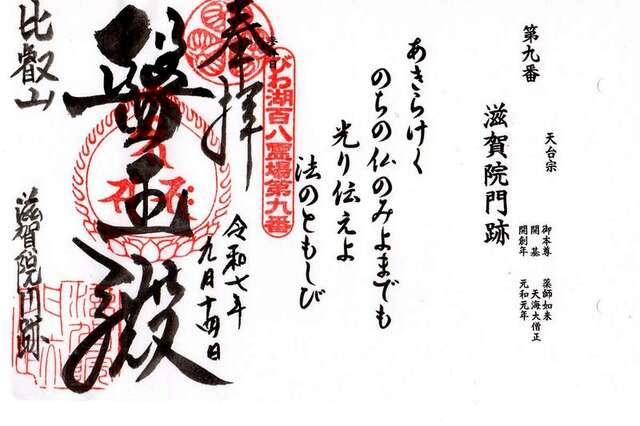 第九番
天台宗
御本尊 薬師如来
開基 天海大僧正
開創年 元和元年
滋賀院門跡
あきらけく
のちの仏のみよまでも
光り伝えよ
法のともしび
びわ湖百八靈場第九番
奉拝
令和七年
九月十四日
醫王殿
比叡山
滋賀院門跡